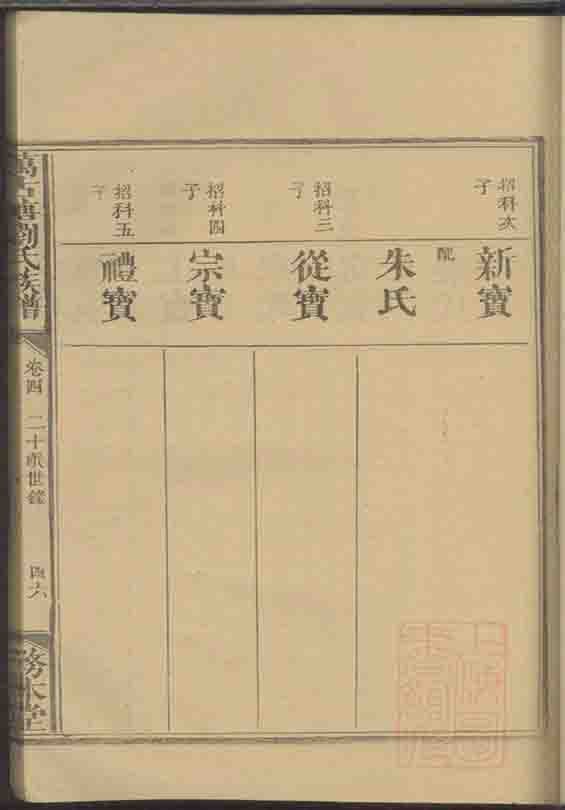 招科次子
新寶
配
朱氏
招科三子
從寶
招科四子
宗寶
招科五子
禮寶
萬古塘劉氏族譜
卷四 二十派世錄
四六
務本堂